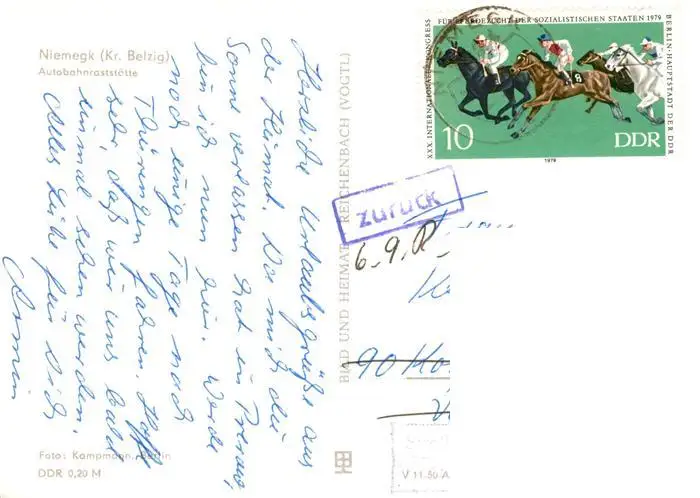 Niemegk (Kr. Belzig)
Autobahnraststätte
Herzliche Urlaubsgrüße aus
der Heimat. Da mich die
Sonne verlassen hat in Prerow,
bin ich nun hier. Werde
noch einige Tage nach
Thüringen fahren. Hoffe
sehr, daß wir uns bald
einmal sehen werden.
Alles Liebe für Dich
Foto: Kampmann, Berlin
DDR 0,20 M
BILD UND HEIMAT REICHENBACH (VOGTL)
XXX. INTERNATIONALER KONGRESS
FÜR PFERDEZUCHT DER SOZIALISTISCHEN STAATEN 1979
BERLIN-HAUPTSTADT DER DDR
8
10
DDR
1979
zurück
6.9.
90
V 11-50 A